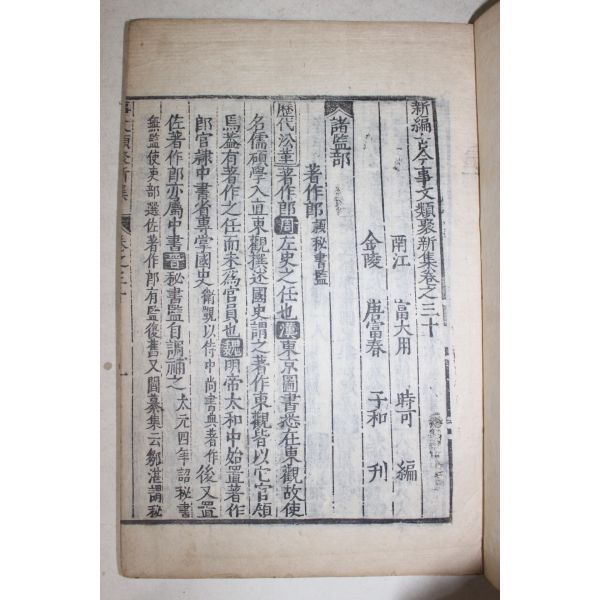 新編古今事文類聚新集卷之三十
南江 富大用 時可 編
金陵 唐富春 子和 刋
諸監部
著作郎 調秘書監
歷代沿革 著作郎 周 左史之任也 漢 東京圖書悉在東觀故使
名儒碩學入直東觀撰述國史謂之著作東觀皆以它官領
焉蓋有著作之任而未爲官員也 魏 明帝太和中始置著作
郎官隷中書省專掌國史 衛覬以侍中尚書典著作 後又置
佐著作郎亦屬中書 晉 秘書監自調補之 太元四年詔秘書
無監使吏部選佐著作郎有監復舊又閻纂集云鄒湛謂秘